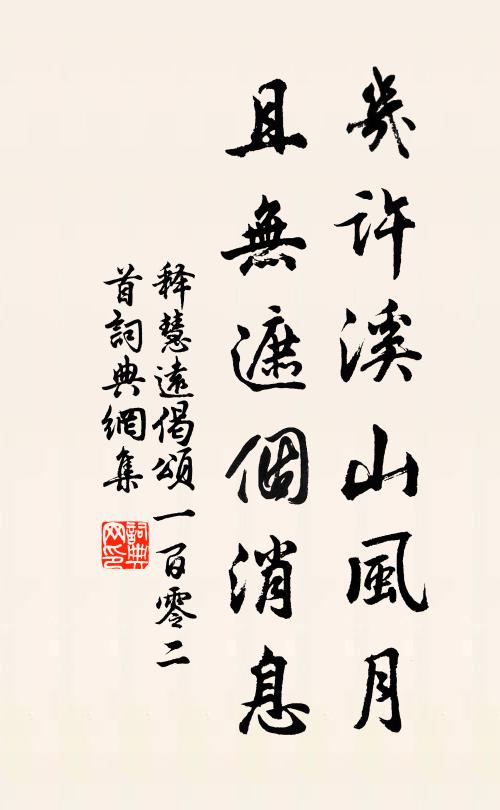 幾許溪山風月
且無遮個消息
释慧遠偈頌一百零二
首詞典網集
詞典网印